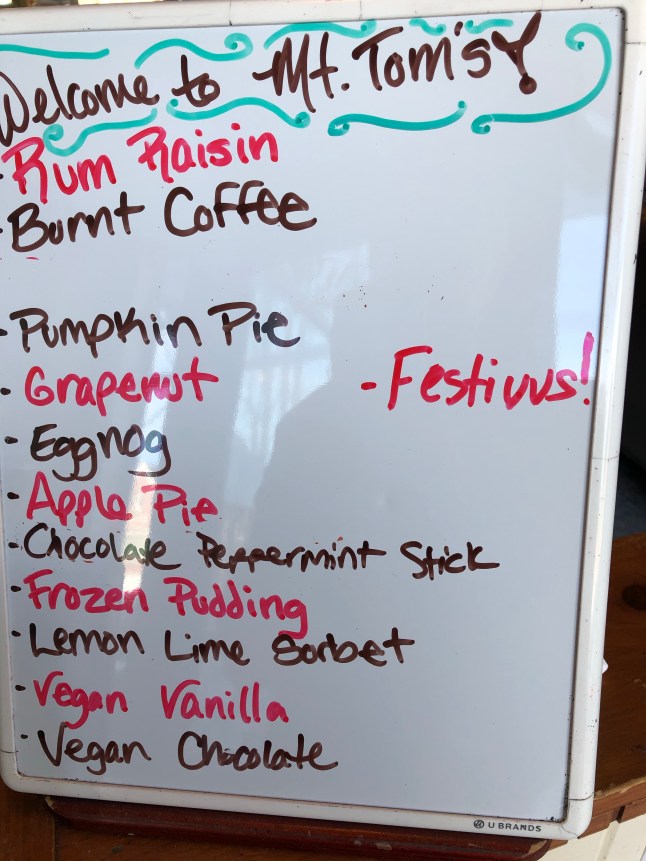 Welcome to Mt. Tom's!
- Rum Raisin
- Burnt Coffee
- Pumpkin Pie
- Grapenut
- Festivus!
- Eggnog
- Apple Pie
- Chocolate Peppermint Stick
- Frozen Pudding
- Lemon Lime Sorbet
- Vegan Vanilla
- Vegan Chocolate
U BRANDS